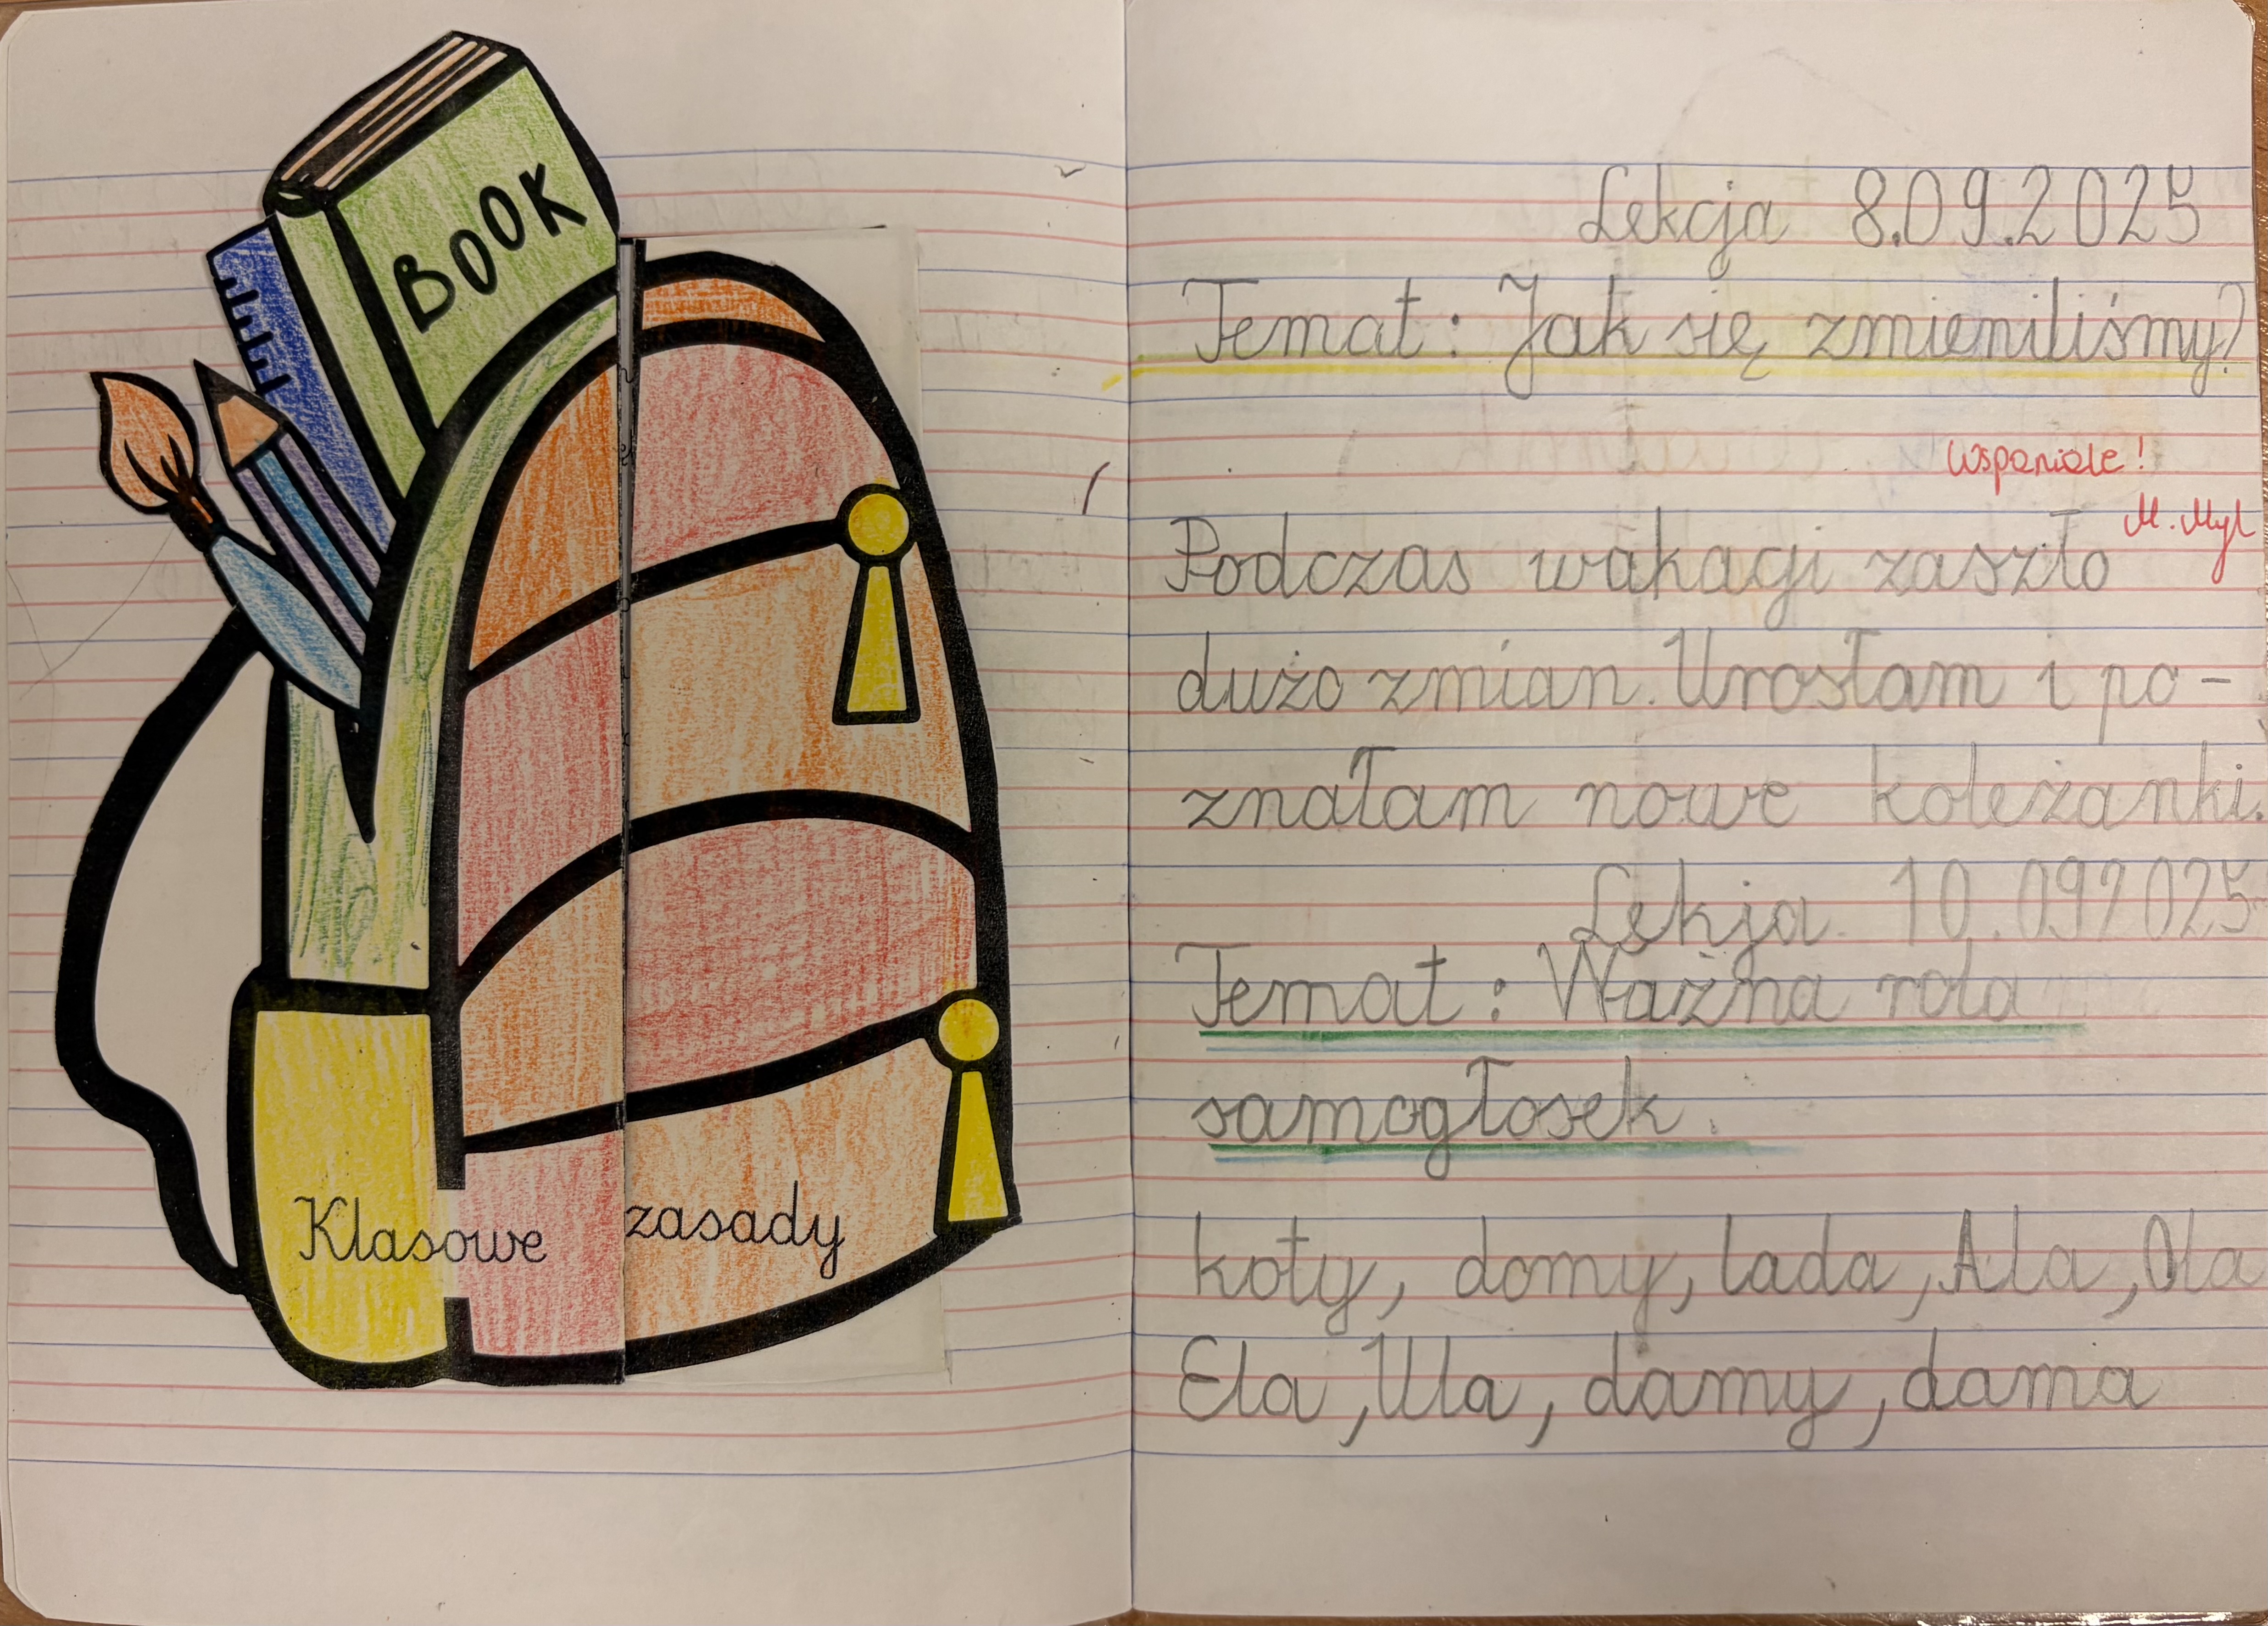 BOOK
Klasowe zasady
Lekcja 8.09.2025
Temat: Jak się zmieniliśmy?
Wspaniale!
M. Myl
Podczas wakagi zaszło
dużo zmian. Urosłam i po-
znałam nowe koleżanki.
Lekja 10.092025
Temat: Ważna rola
samogłosek.
koty, domy, lada, Ala, Ola
Ela, Ula, damy, dama